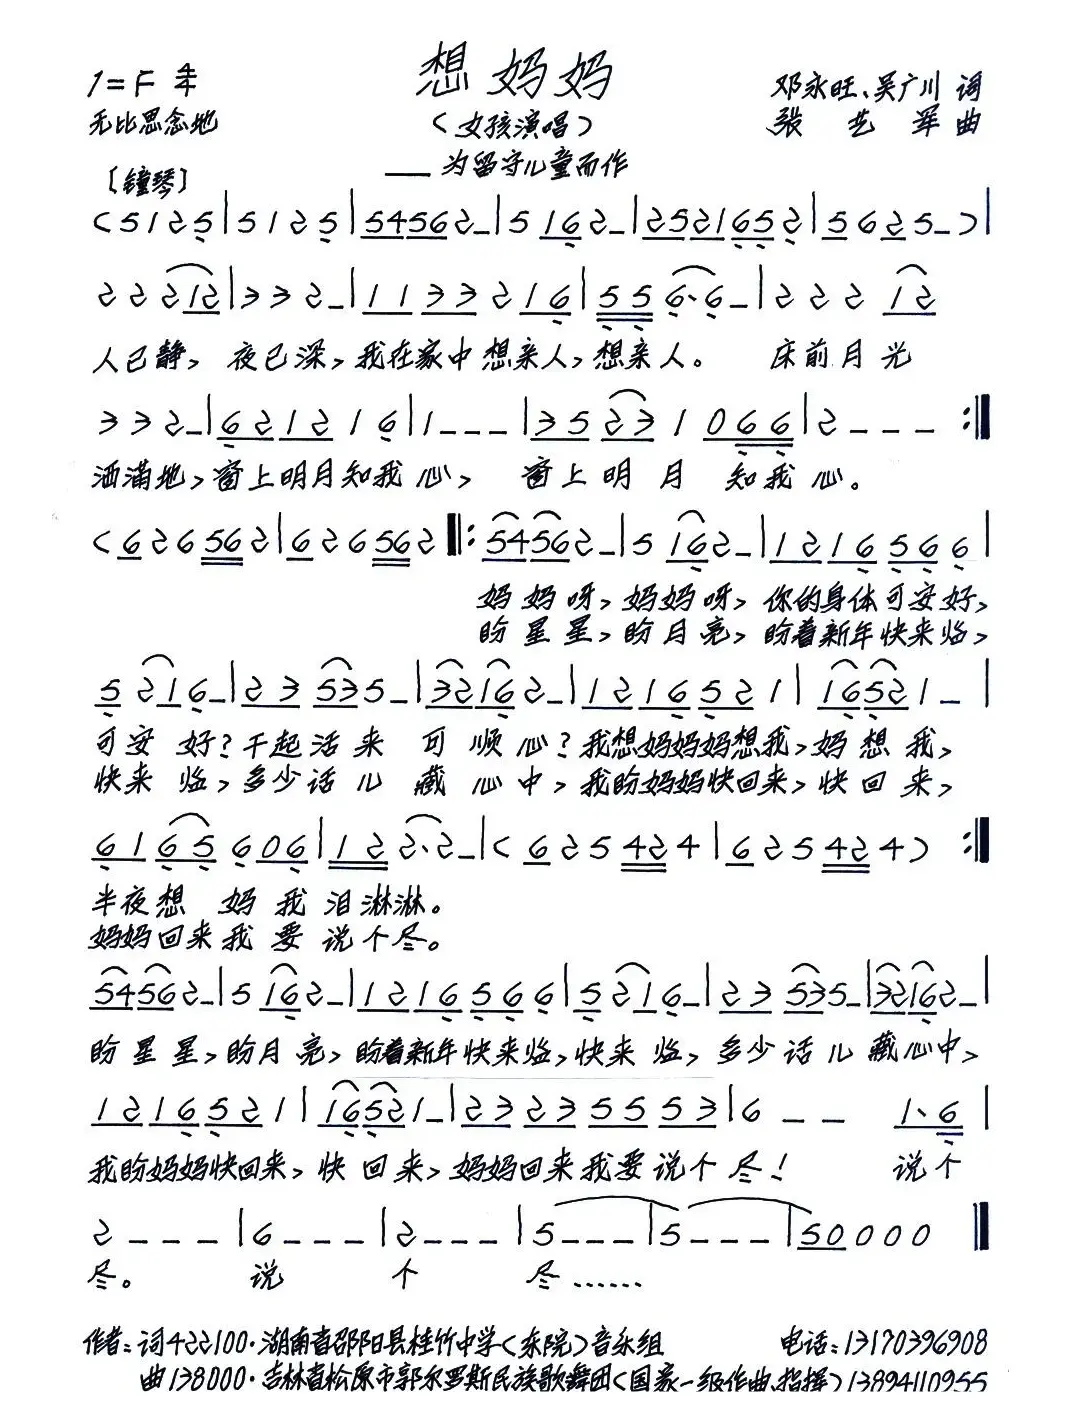 想妈妈
1=F 4/4
邓永旺、吴广川 词
无比思念地
(女孩演唱)
张艺军 曲
——为留守儿童而作
[钟琴]
(5 1 2 5|5 1 2 5|5456 2 -|5 16 2 -|252165 2|5 6 2 5 -)|
2 2 2 12|3 3 2 -|11 33 2 16|55 6、6 -|2 2 2 12
人已静,夜已深,我在家中想亲人,想亲人。 床前月光
3 3 2 -|62 12 1 6|1 - - -|35 23 1 066|2 - - - :|
洒满地,窗上明月知我心, 窗上明月 知我心。
(6 2 6 56 2|6 2 6 56 2 |: 5456 2 -|5 16 2 -|12 16 56 6|
妈妈呀,妈妈呀,你的身体可安好,
盼星星,盼月亮,盼着新年快来临,
5 21 6 -|23 53 5 -|3216 2 -|12 16 52 1|1652 1 -|
可安 好?干起活来 可顺心?我想妈妈妈想我,妈想我,
快来 临,多少话儿 藏心中,我盼妈妈快回来,快回来,
61 65 6 06|12 2、2 -|(6 2 5 42 4|6 2 5 42 4) :|
半夜想 妈我泪淋淋。
妈妈回来我要说个尽。
5456 2 -|5 16 2 -|12 16 56 6|5 21 6 -|23 53 5 -|3216 2 -|
盼星星,盼月亮,盼着新年快来临,快来临,多少话儿藏心中,
12 16 52 1|1652 1 -|23 23 55 53|6 - - 1、6|
我盼妈妈快回来,快回来,妈妈回来我要说个尽! 说个
2 - - -|6 - - -|2 - - -|5 - - -|5 - - -|50 0 0 0‖
尽。 说 个 尽……
作者:词422100·湖南省邵阳县桂竹中学(东院)音乐组 电话:13170396908
曲138000·吉林省松原市郭尔罗斯民族歌舞团(国家一级作曲、指挥)13894110955